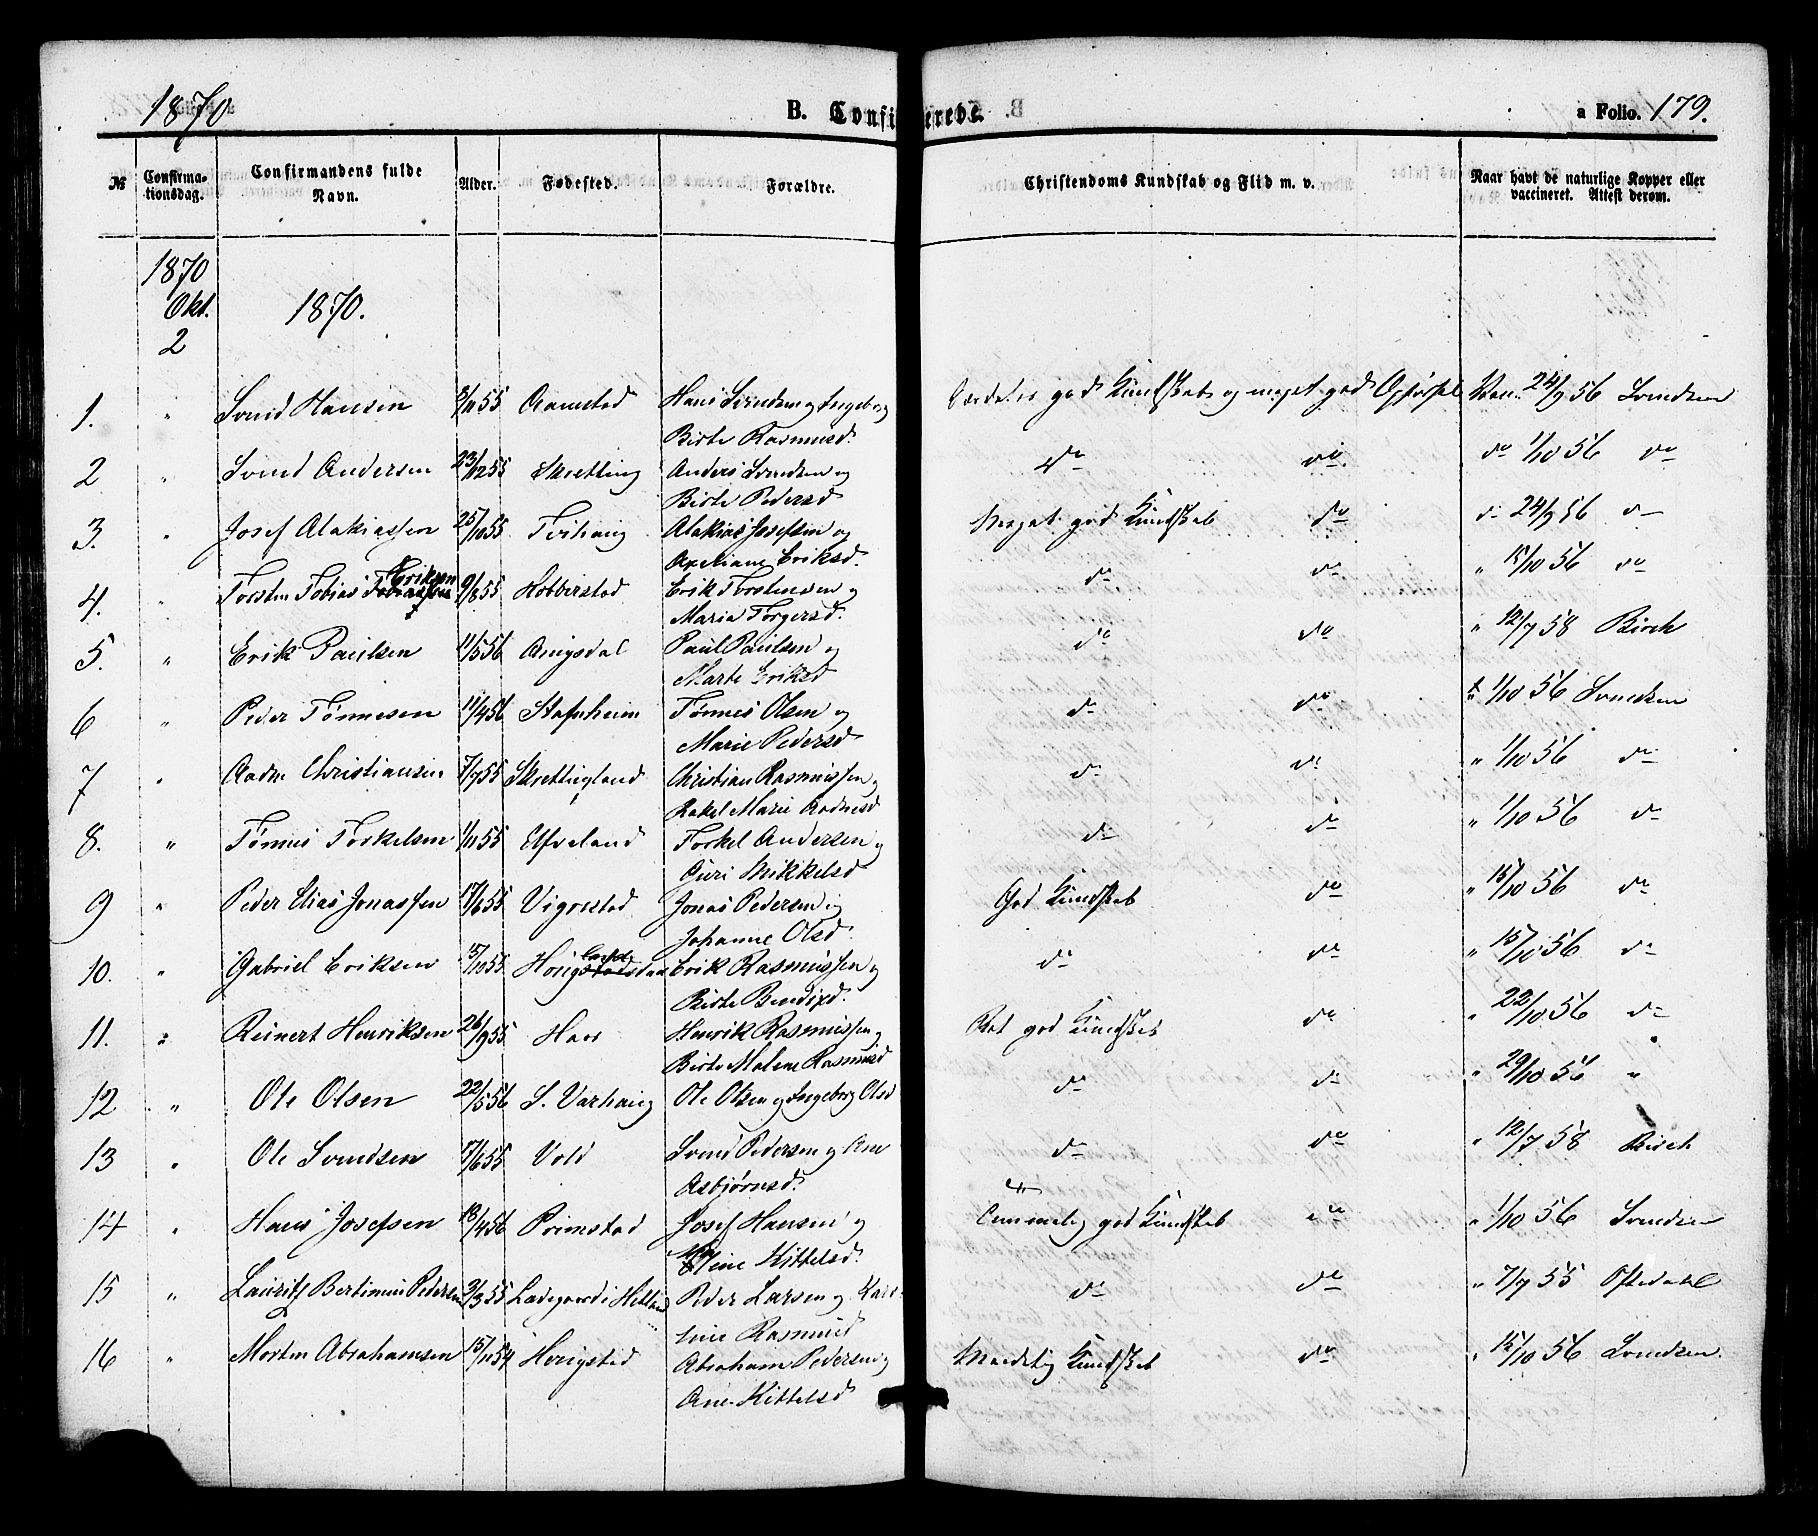 1870
B. Confirmerede.
a Folio. 179.
№ Confirmationsdag. Confirmandens fulde Navn. Alder. Fødested. Forældre. Christendoms Kundskab og Flid m. v. Naar havt de naturlige Kopper eller vaccineret. Attest derom.
1870
Okt. 1870.
2
1. " Svend Hansen 8/11 55 Aanestad Hans Svendsen og Ingeborg god Kundskab og meget god Opførsel Vac. 24/9 56 Svendsen
Birte Rasmusd.
2 " Svend Andersen 23/12 55 Skretting Anders Svendsen og do do do 1/10 56 do
Birte Pedersd
3. " Josef Malakiassen 25/10 55 Tvihaug Malakias Josefsen og Meget god Kundskab do do 24/9 56 do
Axeliane Eriksd.
4. " Torsten Tobias Tobiassen Eriksen 9/8 55 Hobberstad Erik Torstensen og do do " 15/10 56 do
Maria Torgersd.
5. " Erik Paulsen 11/5 56 Aniksdal Paul Paulsen og do do " 12/7 58 Birch
Marte Eriksd
6 " Peder Tønnesen 11/4 56 Stafnheim Tønnes Olsen og do do " 1/10 56 Svendsen
Marie Pedersd
7 " Aadne Christiansen 7/7 55 Skrettingland Christian Rasmussen og do do " 1/10 56 do
Rakel Marie Aadnesd
8. " Tønnes Torkelsen 1/11 55 Elfveland Torkel Andersen og do do " 1/10 56 do
Guri Mikkelsd
9 " Peder Elias Jonassen 17/6 55 Vigrestad Jonas Pedersen og God Kundskab do " 15/10 56 do
Johanne Olsd.
10. " Gabriel Eriksen 15/10 55 Erik Rasmussen og do do " 15/10 56 do
Birte Bendixd.
11. " Reinert Henriksen 26/9 55 Haar Henrik Rasmussen og god Kundskab do " 22/10 56 do
Birte Malene Rasmusd
12 " Ole Olsen 22/5 56 S. Varhaug Ole Olsen og Ingeborg Olsd do do " 29/10 56 "
13 " Ole Svendsen 17/6 55 Vold Svend Pedersen og Ane do do " 12/7 58 Birch
Asbjørnsd.
14 " Hans Josefsen 18/4 56 Primstad Josef Hansen og Temmelig god Kundskab do " 1/10 56 Svendsen
Kittelsd.
15 " Laurits Bertinius Pedersen 2/3 55 Ladegaard i Hetland Peder Larsen og Karo- do do " 7/7 55 Oftedahl
line Rasmusd
16 " Morten Abrahamsen 15/11 54 Herigstad Abraham Pedersen og Maadelig Kundskab do " 15/10 56 Svendsen.
Ane Kittelsd